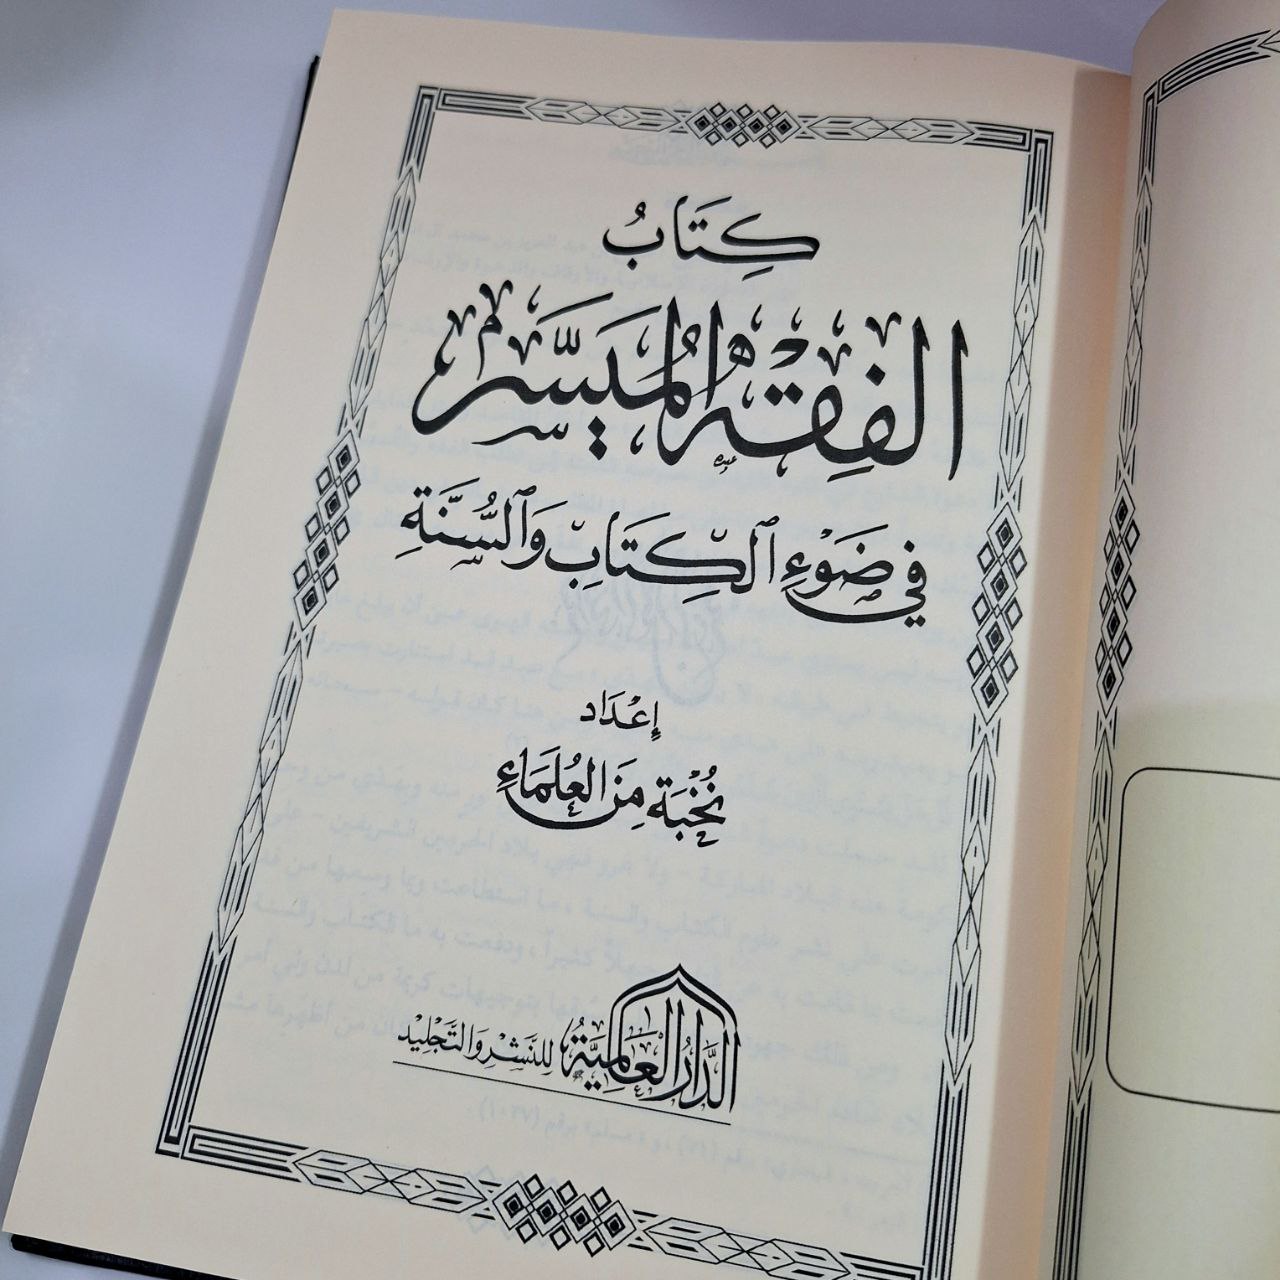 كِتَابُ
الفِقْهِ المُيَسَّرِ
فِي ضَوْءِ ٱلْكِتَابِ وَٱلسُّنَّةِ
إِعْدَاد
نُخْبَة مِنَ العُلَمَاءِ
الدَّارُ العَالَمِيَّةُ لِلنَّشْرِ وَالتَّجْلِيْد